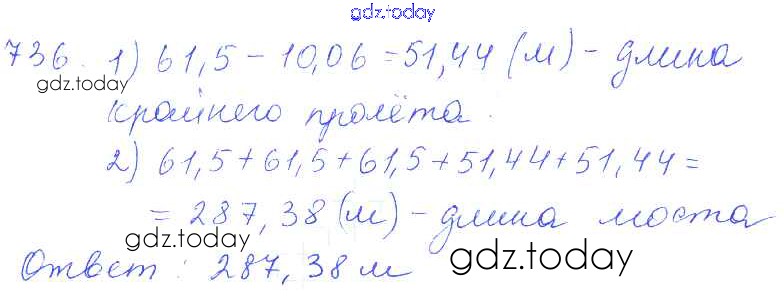 gdz.today
736. 1) 61,5 - 10,06 = 51,44 (м) - длина
gdz.today
крайнего пролёта.
2) 61,5 + 61,5 + 61,5 + 51,44 + 51,44 =
= 287,38 (м) - длина моста
gdz.today
Ответ: 287,38 м
gdz.today